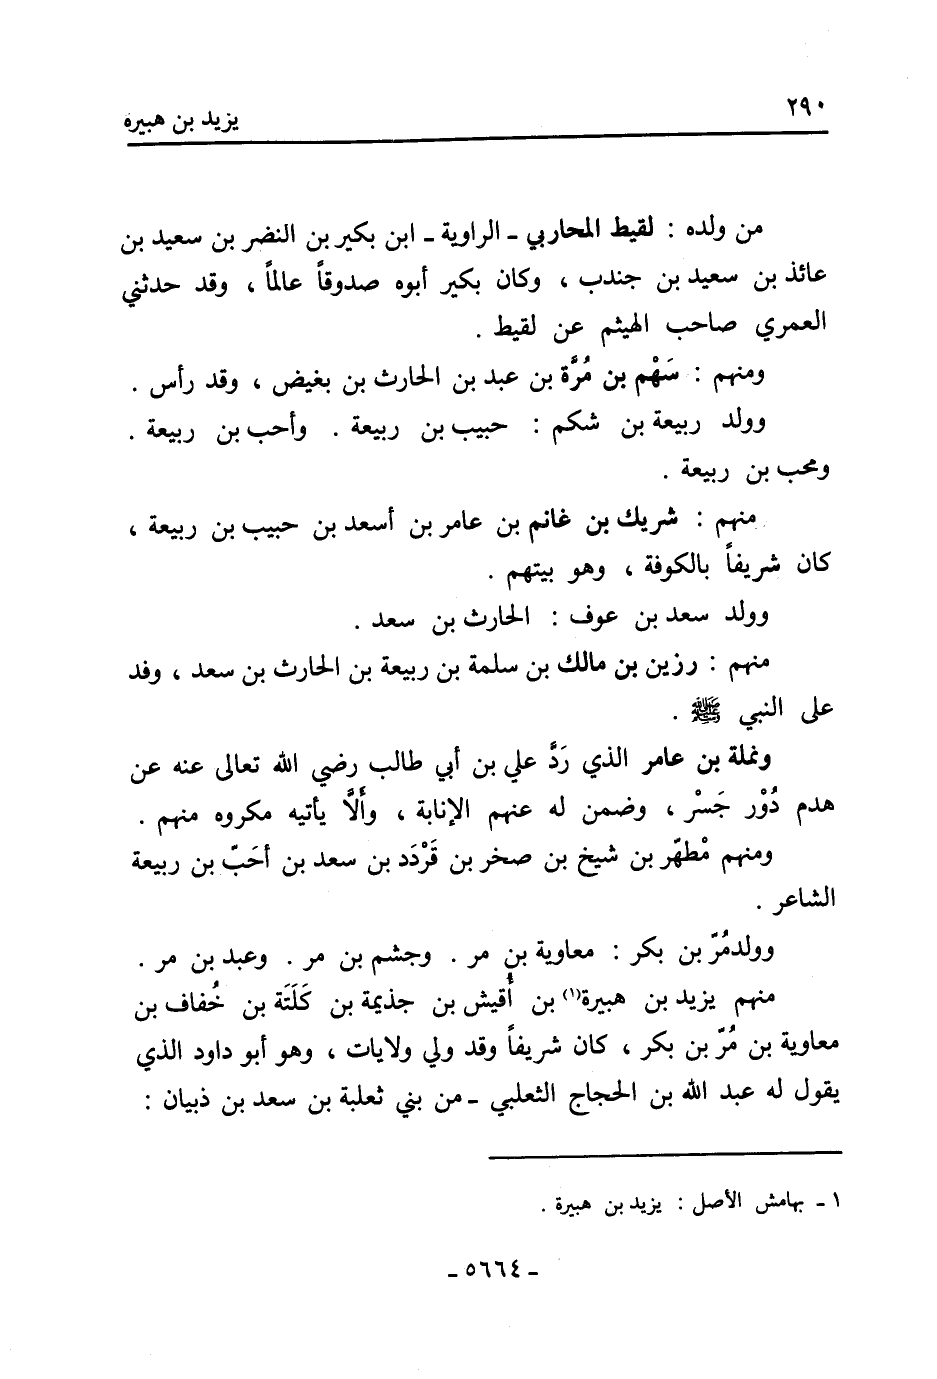 ٢٩٠
يزيد بن هبيرة
من ولده : لقيط المحاربي ـ الراوية ـ ابن بكير بن النضر بن سعيد بن
عائذ بن سعيد بن جندب ، وكان بكير أبوه صدوقاً عالماً ، وقد حدثني
العمري صاحب الهيثم عن لقيط .
ومنهم : سَهْم بن مُرَّة بن عبد بن الحارث بن بغيض ، وقد رأس .
وولد ربيعة بن شكم : حبيب بن ربيعة . وأحب بن ربيعة .
ومحب بن ربيعة .
منهم : شريك بن غانم بن عامر بن أسعد بن حبيب بن ربيعة ،
كان شريفاً بالكوفة ، وهو بيتهم .
وولد سعد بن عوف : الحارث بن سعد .
منهم : رزين بن مالك بن سلمة بن ربيعة بن الحارث بن سعد ، وفد
على النبي ﷺ .
ونملة بن عامر الذي رَدَّ علي بن أبي طالب رضي الله تعالى عنه عن
هدم دُوْر جَسْر ، وضمن له عنهم الإنابة ، وأَلَّا يأتيه مكروه منهم .
ومنهم مْطهّر بن شيخ بن صخر بن قَرْدَد بن سعد بن أحَبّ بن ربيعة
الشاعر .
وولدمُرّ بن بكر : معاوية بن مر . وجشم بن مر . وعبد بن مر .
منهم يزيد بن هبيرة(١) بن أُقيش بن جذيمة بن كَلَتَة بن خُفاف بن
معاوية بن مُرّ بن بكر ، كان شريفاً وقد ولي ولايات ، وهو أبو داود الذي
يقول له عبد الله بن الحجاج الثعلبي ـ من بني ثعلبة بن سعد بن ذبيان :
١ ـ بهامش الأصل : يزيد بن هبيرة .
ـ ٥٦٦٤ ـ